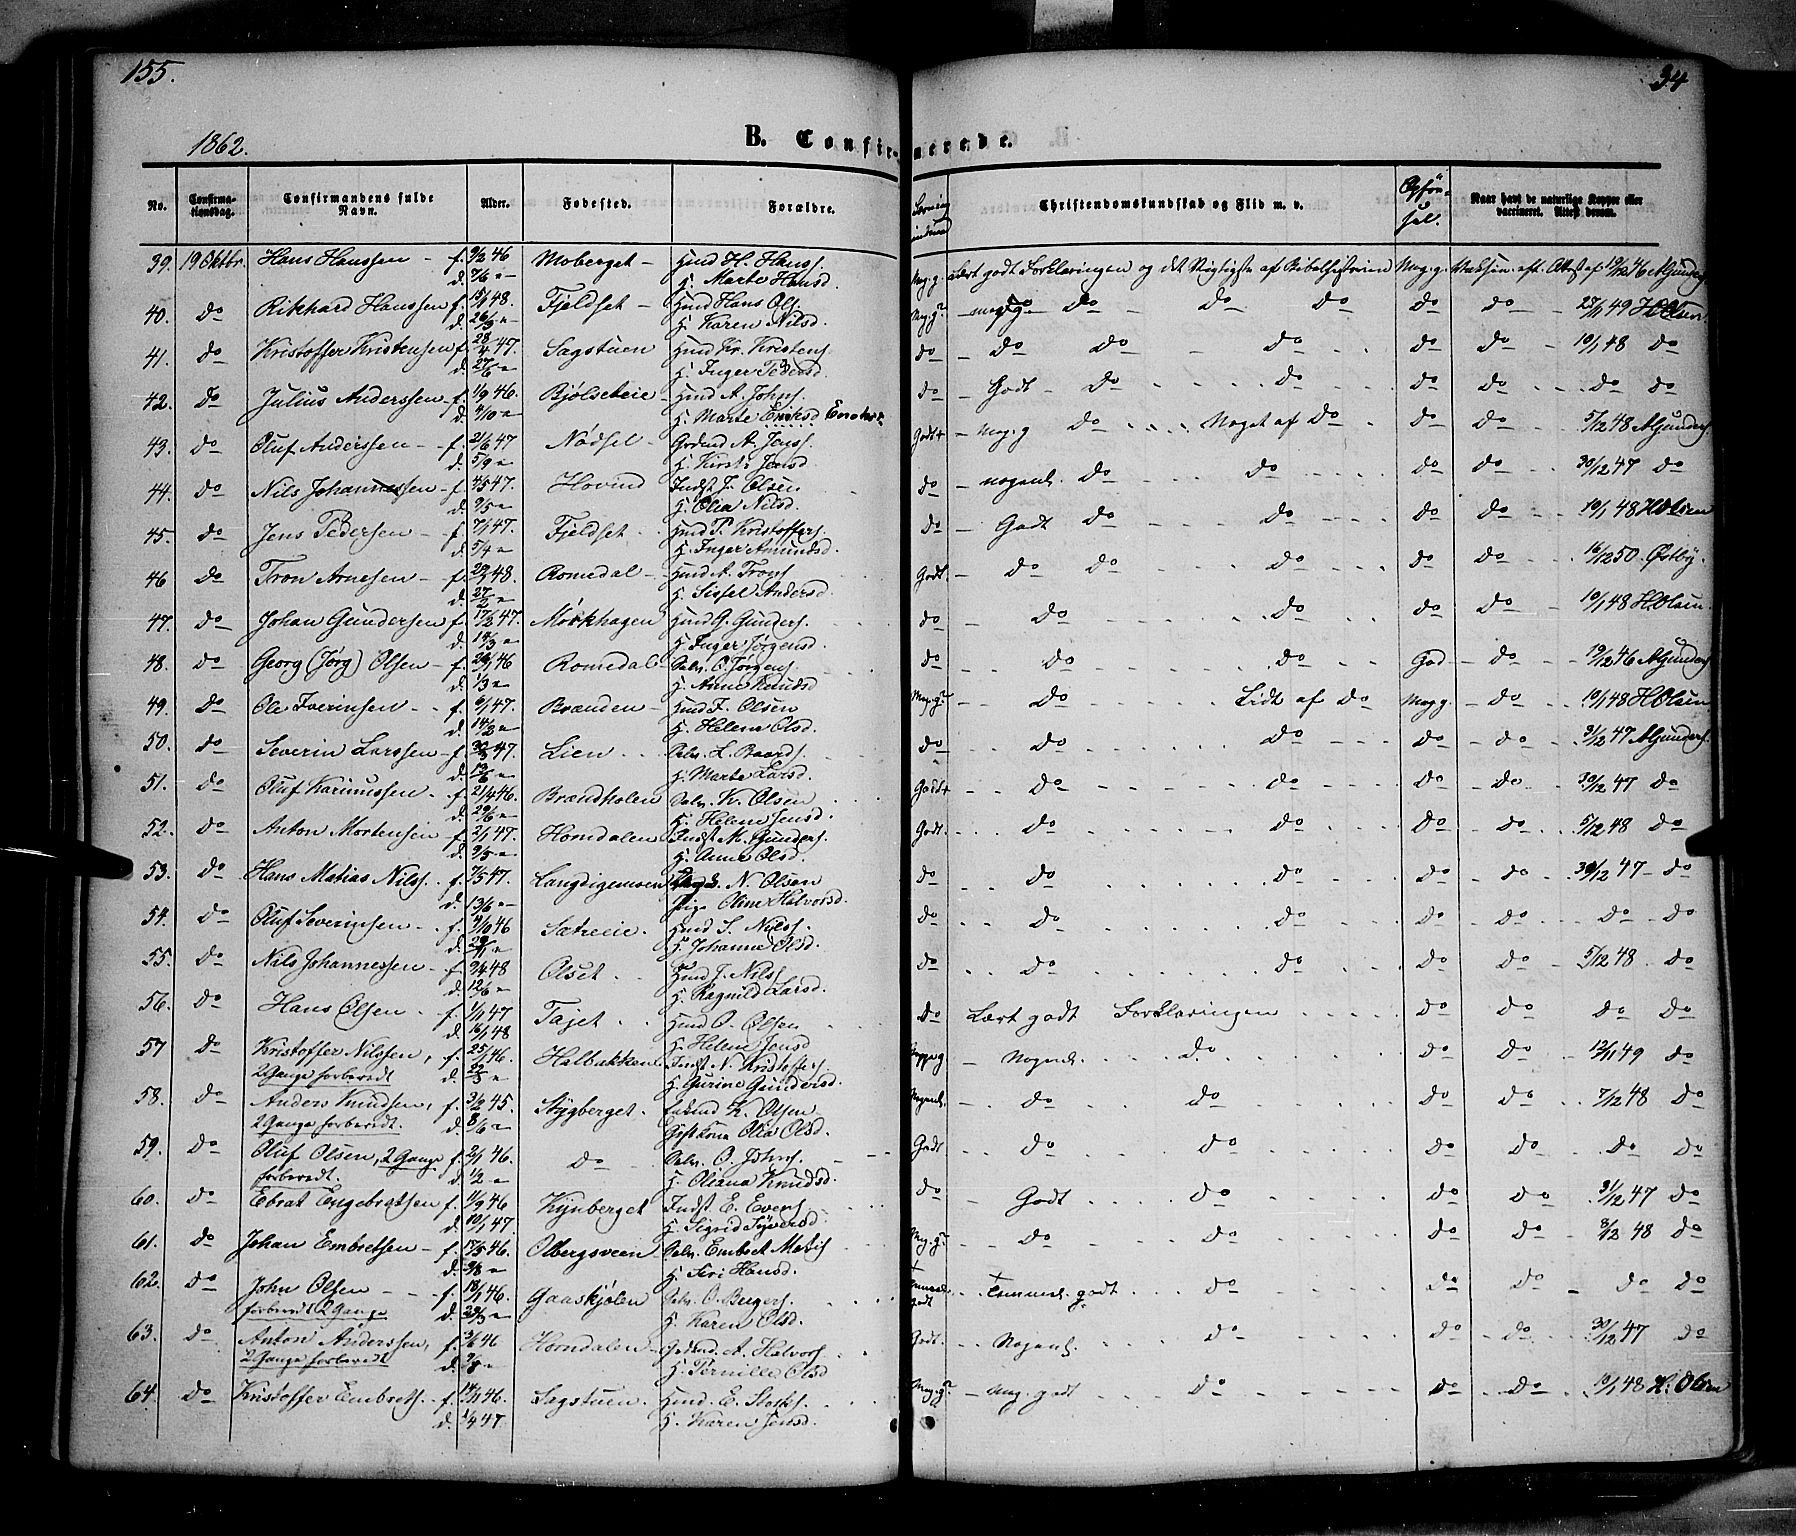 155.
34
1862.
B. Confirmerede.
No. Confirmationsdag. Confirmandens fulde Navn. Alder. Fødested. Forældre. Christendomskundskab og Flid m. v. Opførsel. Naar havt de naturlige Kopper eller vaccineret. Attest derom.
39. 19 Oktbr. Hans Hanssen f. 9/2 46 Moberget Huusmd H. Hanss. Meg. g. Lært godt Forklaringen og det Vigtigste af Bibelhistorien Meg. g. Vaksin. eft. Attest af 19/12 46 A. Gunders.
d. 7/6 K. Marte Hansd.
40. do Rikhard Hanssen f. 15/1 48. Fjeldset Hmd Hans Ols. Meg. g. do do do do do 27/11 49 H. Olsen.
d. 26/3 K. Karen Nilsd.
41. do Kristoffer Kristensen f. 28/4 47. Sagstuen Hmd Kr. Kristens. do do do do do do 10/1 48 do
d. 27/6 K. Inger Pedersd.
42. do Julius Anderssen f. 1/9 46. Bjølseteie Hmd A. Johns. do Godt do do do do do do
d. 4/10 K. Marte
43. do Oluf Anderssen f. 2/6 47 Nødset A. Jenss. Godt+ Meg. g do Noget af do do do 5/2 48 A. Gunders.
d. 5/9 K. Kirsti Jensd.
44. do Nils Johannessen f. 4/5 47. Hovind Indst J. Olsen do nogenl. do do do do 30/12 47 do
d. 9/5 K. Olea Nilsd.
45. do Jens Pedersen f. 7/1 47. Fjeldset Hmd P. Kristoffers. do Godt do do do do 10/1 48 H. Olsen
d. 5/4 K. Inger Amundsd.
46 do Tron Arnesen f. 48. Romedal Hmd A. Trons. Godt. do do do do do 16/12 50. Østby.
d. 27/2 K. Sissel Andersd.
47. do Johan Gundersen f. 17/2 47. Mørkhagen Hmd G. Gunders. do do do do do 10/1 48 H. Olsen.
d. 14/3 K. Inger Jørgensd.
48. do Georg (Jørg) Olsen f. 46 Romedal Selv. O. Jørgens. do do do God do 19/12 46 A. Gunders.
d. 1/3 K. Anne Knudsd
49. do Ole Iverinsen f. 6/1 47. Brænden Hmd I. Olsen Meg. g. do Lidt af do Meg g. do 10/1 48 H. Olsen.
d. 14/2 K. Helene Olsd.
50. do Severin Larssen f. 30/3 47. Lien Selv. L. Baards. do do do do do 31/12 47 A. Gunders.
d. 13/6 K. Marte Larsd.
51. do Oluf Karinussen f. 21/4 46. Brændholen Selv. K. Olsen Godt+ do do do do 30/12 47 do
d. 29/6 K. Helene Jensd.
52. do Anton Mortensen f. 2/1 47. Horndalen Indst M. Gunders. Godt. do do do do 5/12 48 do
d. 9/5 K. Anne Olsd.
53. do Hans Matias Nilss. f. 7/5 47. Langdigemoen N. Olsen do do do do do 30/12 47 do
d. 13/6 Pige Oline Halvorsd.
54. do Oluf Severinsen f. 4/10 46 Sætreeie. Hmd S. Nilss. do do do do do do do
d. 29/11 K. Johanne Olsd.
55. do Nils Johannessen f. 9/4 48 Olset Hmd J. Nilss. do do do do do 5/12 48 do
d. 12/6 K. Ragnild Larsd.
56. do Hans Olsen f. 1/1 47 Tajet Hmd O. Olsen do Lært godt Forklaringen do do do do
d. 16/1 48 K. Helene Jensd
57 do Kristoffer Nilssen, f. 25/1 46. Halbakken Indst N. Kristoffers. Nogenl. do do do 12/11 49 do
2 Gange forberedt d. 22/3 K. Gurine Gundersd.
58. do Anders Knudsen, f. 3/2 45. Stygberget. K. Olsen Nogenl. do do do do 7/12 48 do
2 Gange forberedt. d. 8/6 Olea Olsd.
59. do Oluf Olsen, 2 Gange f. 2/1 46. do Selv. O. Johns. Godt do do do do do do
forberedt. d. 1/2 K. Oliana Knudsd.
60. do Ebrat Engebretsen f. 11/9 46 Kynberget Indst. E. Evens. do Godt do do do 31/12 47 do
d. 10/1 47 K. Sigrid Syversd.
61. do Johan Embretsen f. 17/5 46. Olbergsveen Selv. Embret Matis. Meg. g. do do do do 3/12 48 do
d. 9/8 K. Siri Hansd.
62. do John Olsen f. 18/1 46. Gaaskjølen Selv. O. Bergers. Temmel. godt Temmel. godt do do do do do
forberedt 2 Gange d. 29/3 K. Karen Olsd.
63. do Anton Anderssen, f. 3/6 46 Horndalen A. Halvors. Godt. Nogenl. do do do 30/12 47 do
2 Gange forberedt d. 9/8 K. Pernille Olsd
64. do Kristoffer Embrets. f. 14/11 46. Sagstuen Hmd. E. Meg. g. Meg. godt do do do 10/1 48 H. Olsen
d. 1/4 47. K. Karen Jensd.